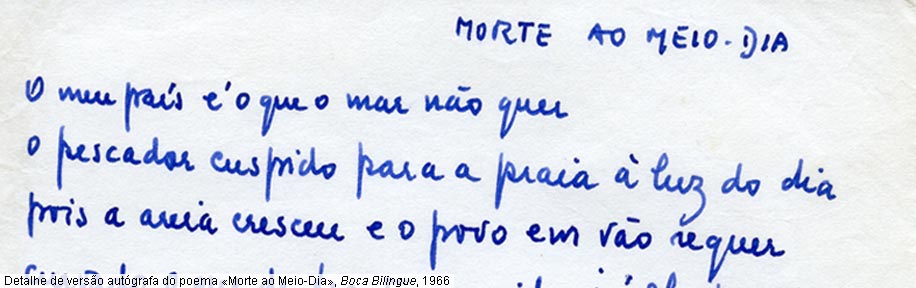 MORTE AO MEIO-DIA
O meu país é o que o mar não quer
o pescador cuspido para a praia à luz do dia
pois a areia cresceu e o povo em vão requer
Detalhe de versão autógrafa do poema «Morte ao Meio-Dia», Boca Bilingue, 1966